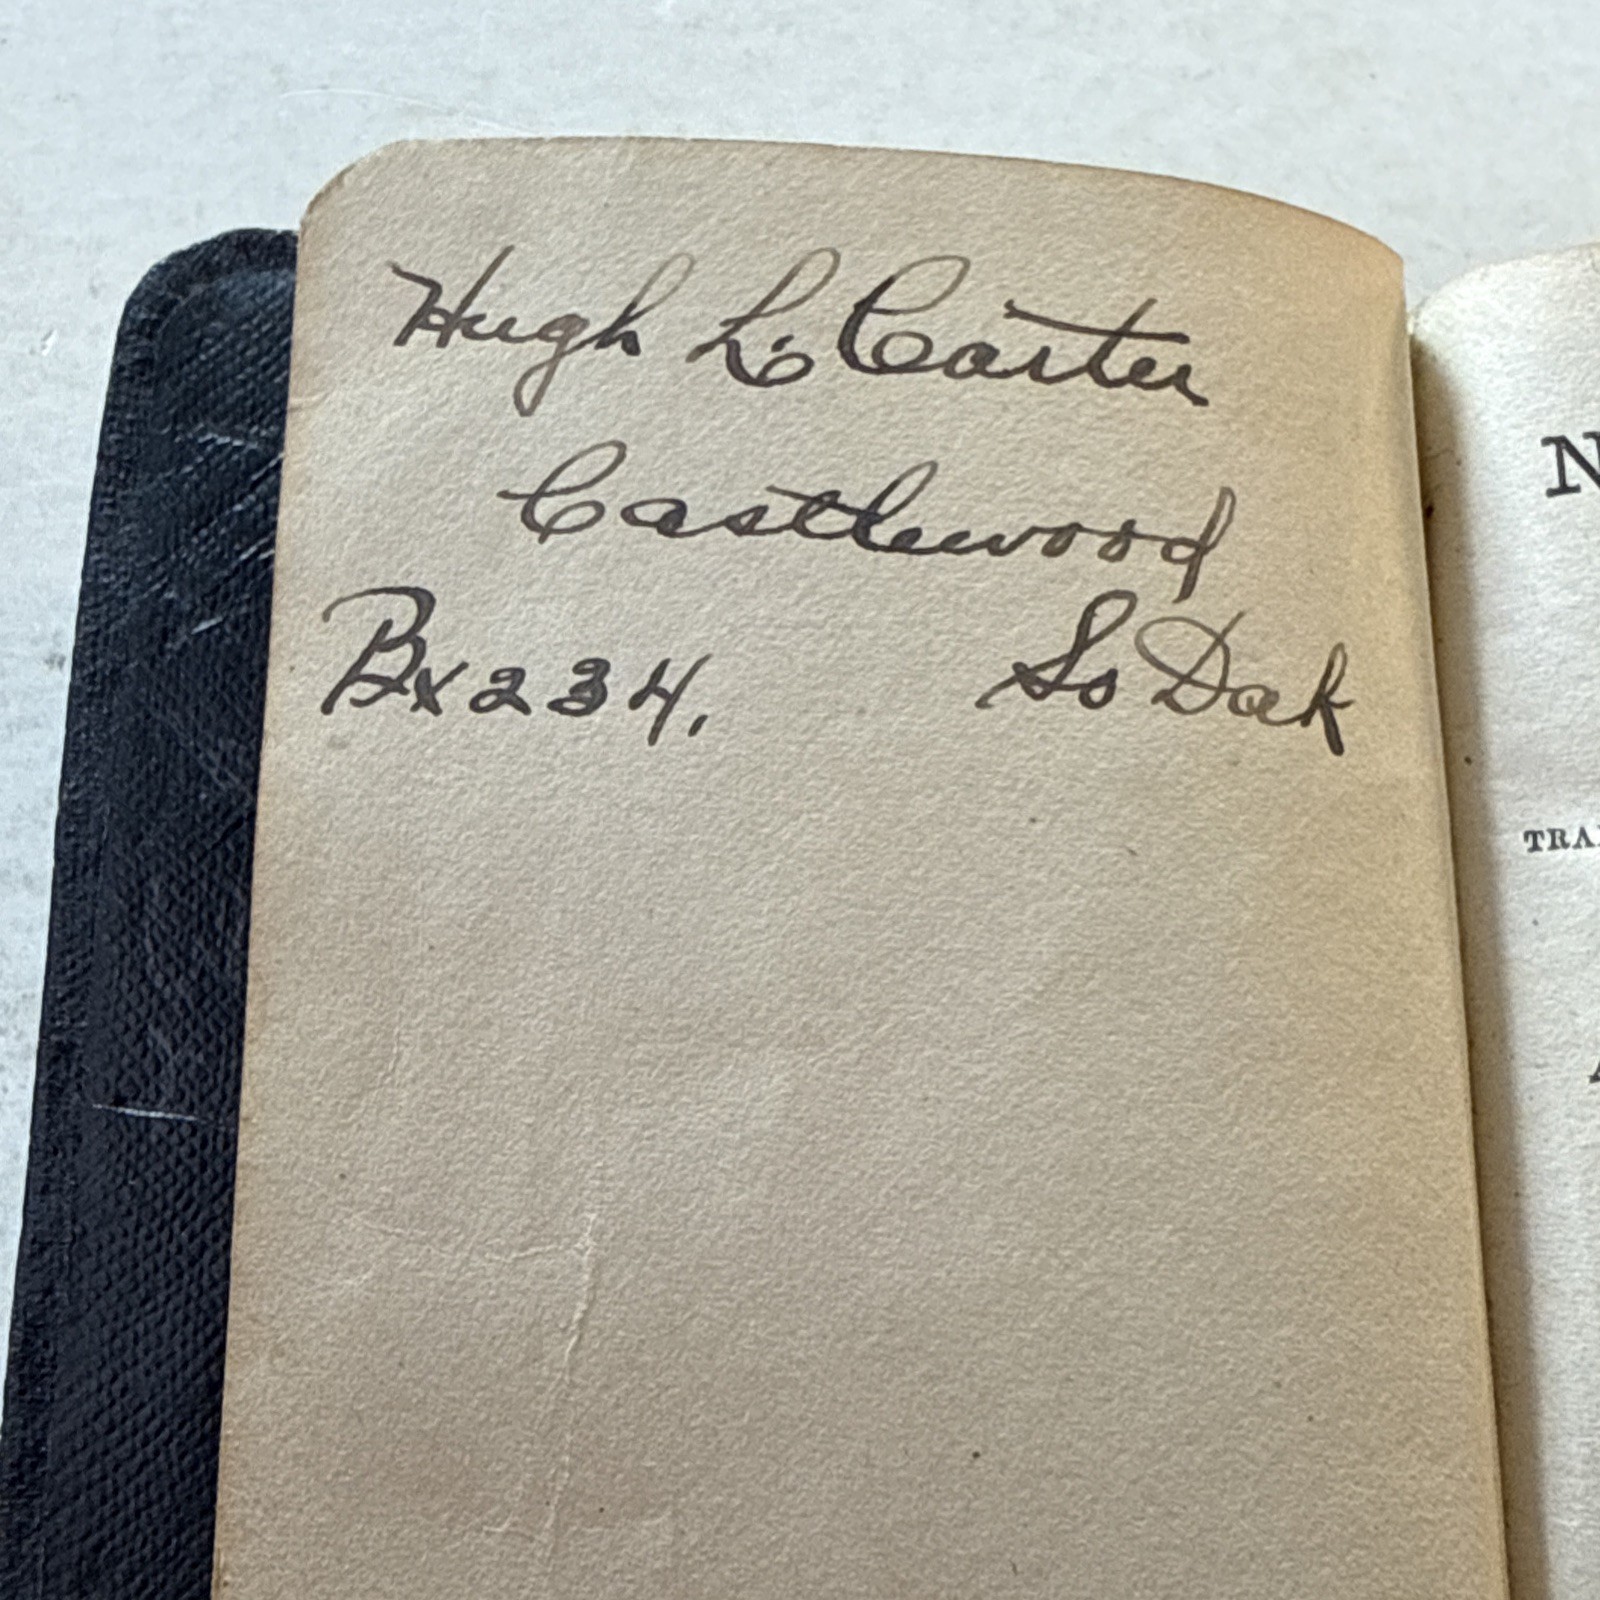 Hugh L. Carter
Castlewood
Bx 234. So Dak
N
TRA